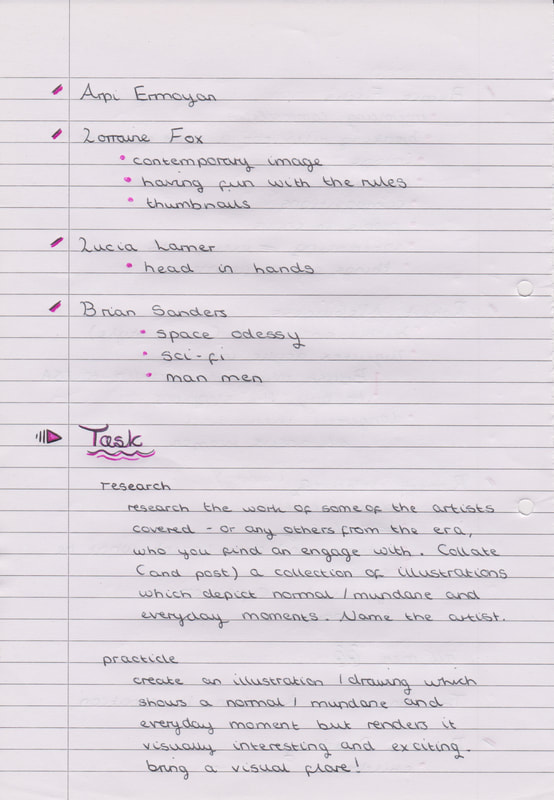 Arpi Ermoyan
Lorraine Fox
• contemporary image
• having fun with the rules
• thumbnails
Lucia Larner
• head in hands
Brian Sanders
• space odessy
• sci-fi
• man men
Task
research
research the work of some of the artists
covered - or any others from the era,
who you find an engage with. Collate
(and post) a collection of illustrations
which depict normal / mundane and
everyday moments. Name the artist.
practicle
create an illustration / drawing which
shows a normal / mundane and
everyday moment but renders it
visually interesting and exciting.
bring a visual flare!